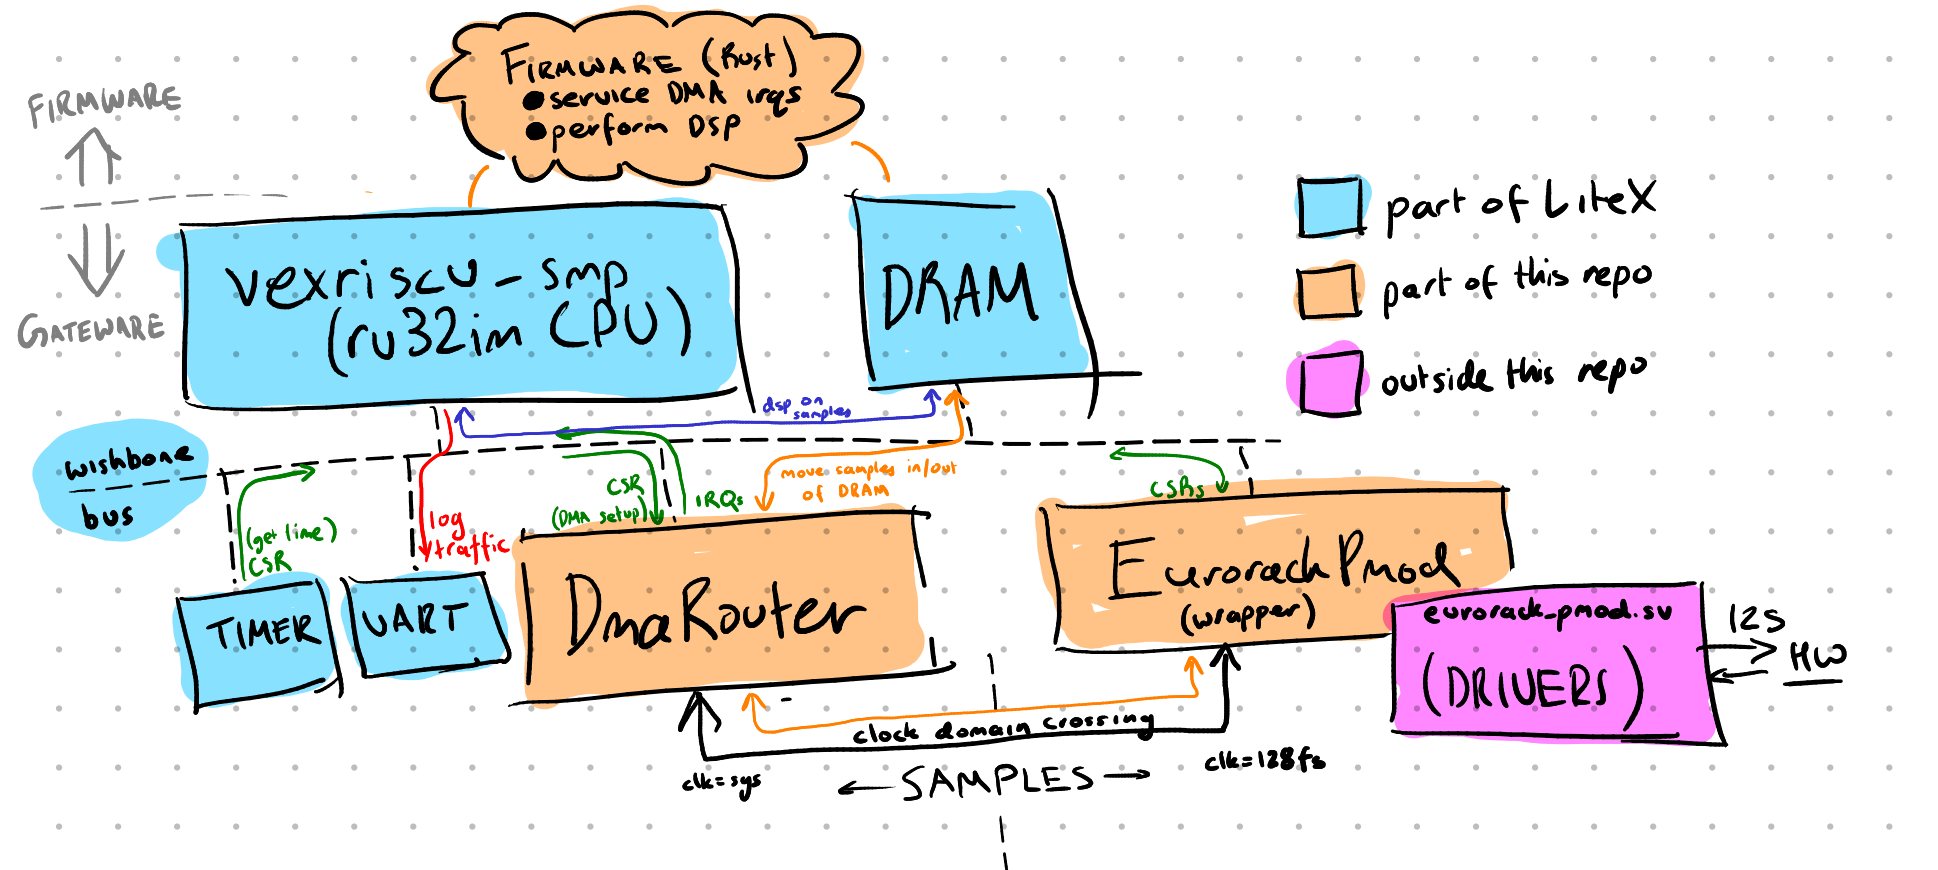 FIRMWARE (Rust)
service DMA irqs
perform DSP
FIRMWARE
GATEWARE
vexriscv-smp
(rv32im CPU)
DRAM
part of LiteX
part of this repo
outside this repo
wishbone
bus
dsp on
samples
move samples in/out
of DRAM
CSR
(DMA setup)
IRQs
CSRs
(get time)
CSR
log
traffic
TIMER
UART
DmaRouter
EurorackPmod
(wrapper)
eurorack_pmod.sv
(DRIVERS)
I2S
HW
clock domain crossing
clk=sys
clk=128fs
SAMPLES